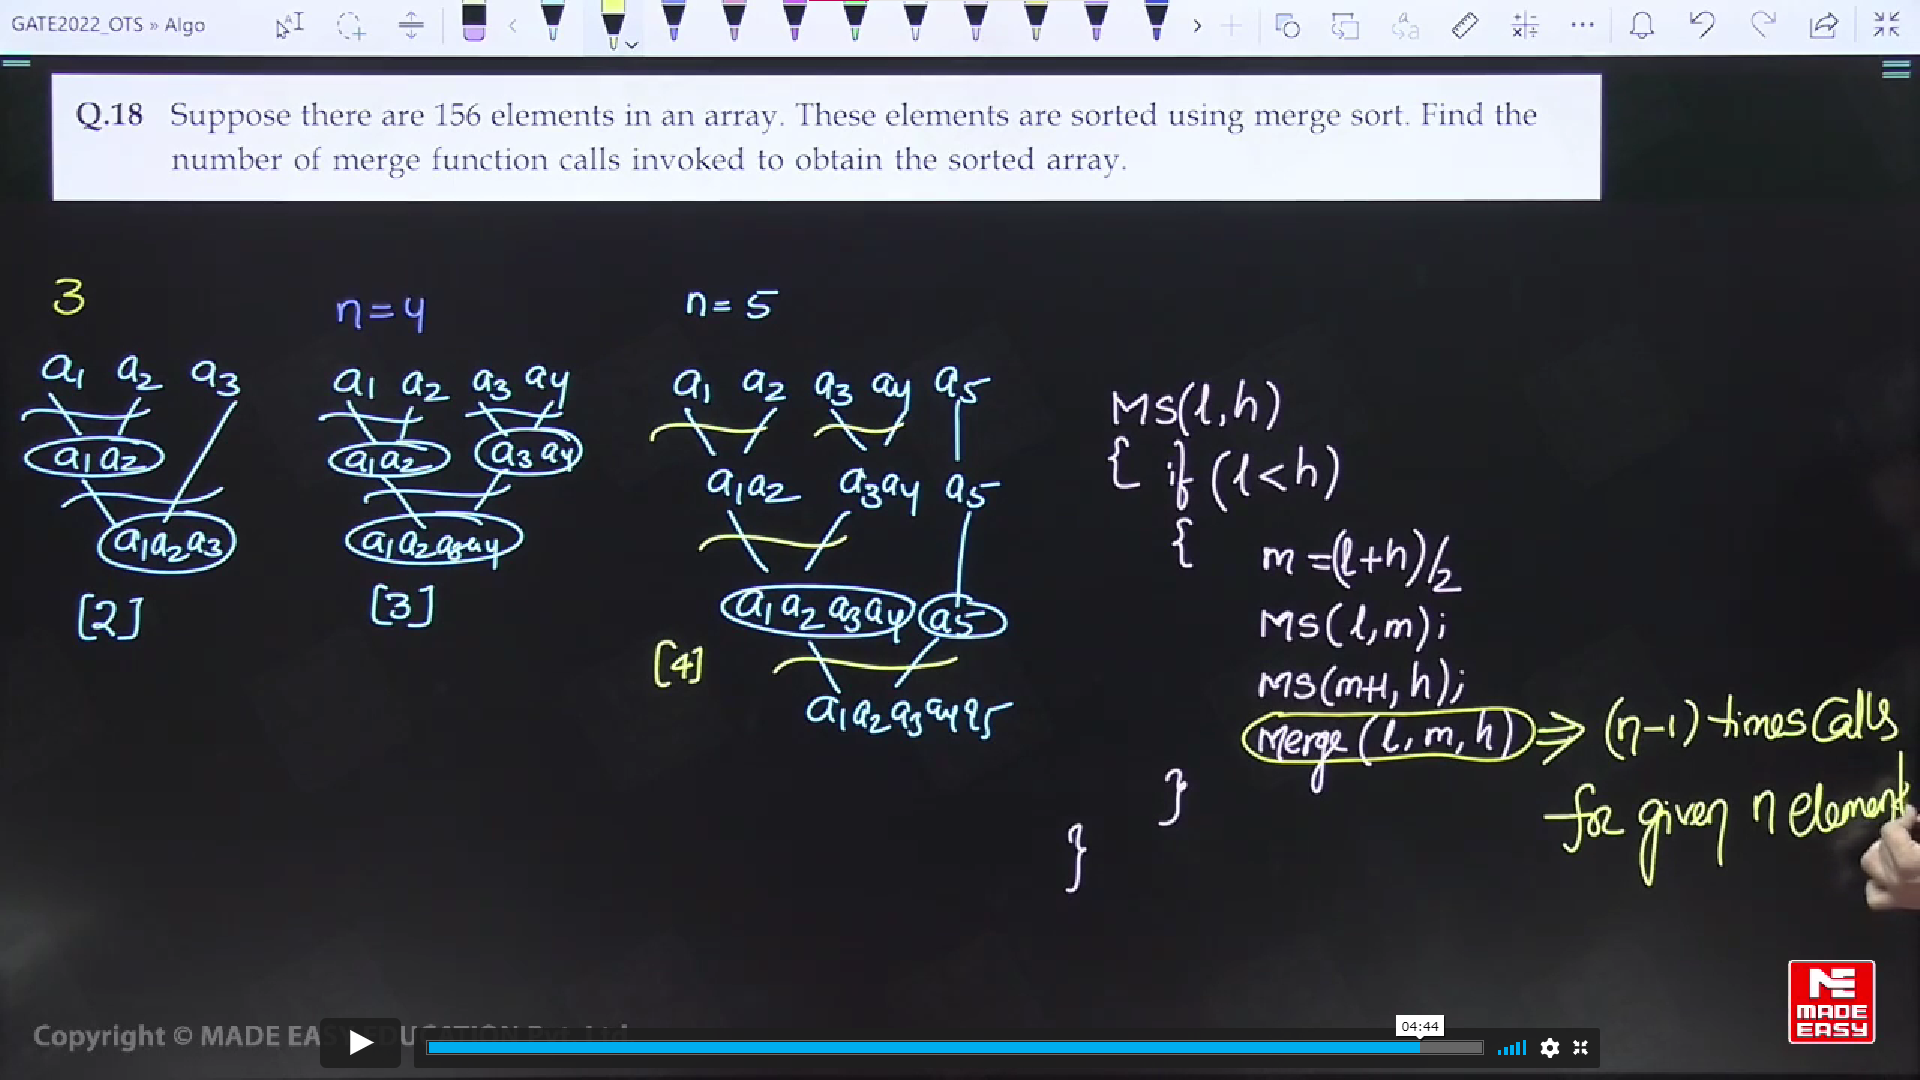 GATE2022_OTS » Algo
Q.18 Suppose there are 156 elements in an array. These elements are sorted using merge sort. Find the
number of merge function calls invoked to obtain the sorted array.
3
a1 a2 a3
a1a2
a1a2a3
[2]
n=4
a1 a2 a3 a4
a1a2 a3a4
a1a2a3a4
[3]
n=5
a1 a2 a3 a4 a5
a1a2 a3a4 a5
a1a2a3a4 a5
[4]
a1a2a3a4a5
MS(l,h)
{ if (l<h)
{ m=(l+h)/2
MS(l,m);
MS(m+1,h);
Merge(l,m,h) ⇒ (n-1) times calls
for given n element
}
}
Copyright © MADE EASY EDUCATION Pvt. Ltd
04:44
ME
MADE
EASY